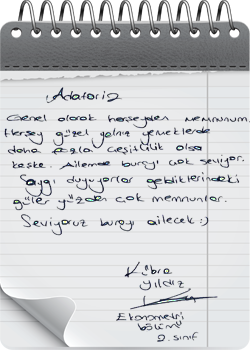 Genel olarak herşeyden memnunum.
Herşey güzel yalnız yemeklerde
daha fazla çeşitlilik olsa
keşke. Ailemde burayı çok seviyor.
Saygı duyuyorlar geldiklerindeki
güler yüzden çok memnunlar.
Seviyoruz burayı ailecek :)
Kübra
yıldız
Ekonometri
bölümü
2. sınıf